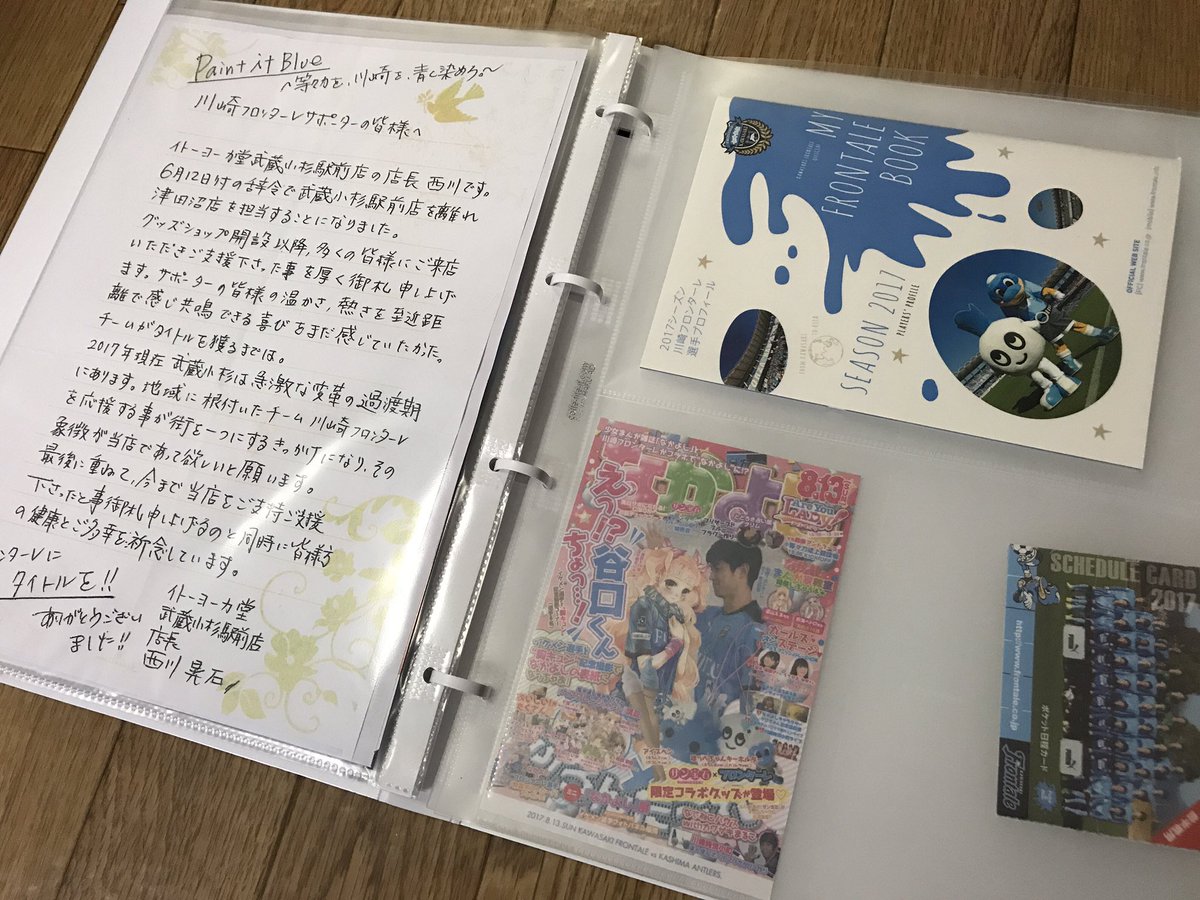 Paint it Blue
〜等々力を、川崎を、青く染めろ。〜
川崎フロンターレサポーターの皆様へ
イトーヨーカ堂武蔵小杉駅前店の店長 西川です。
6月12日付の辞令で武蔵小杉駅前店を離れ
津田沼店を担当することになりました。
グッズショップ開設以降、多くの皆様にご来店
いただきご支援下さった事を厚く御札申し上げ
ます。サポーターの皆様の温かさ、熱さを至近距
離で感じ共鳴できる喜びをまだ感じていたかた。
チームがタイトルを獲るまでは。
2017年現在 武蔵小杉は急激な変革の過渡期
にあります。地域に根付いたチーム 川崎フロンターレ
を応援する事が街を一つにするきっかけになり、その
象徴が当店であって欲しいと願います。
最後に重ねて、今まで当店をご支持ご支援
下さったと事御札申し上げるのと同時に皆様方
の健康とご多幸を祈念しています。
ンターレに
タイトルを!!
ありがとうござい
ました!!
イトーヨーカ堂
武蔵小杉駅前店
店長
西川 晃石
MY
FRONTALE
BOOK
SEASON 2017
PLAYERS' PROFILE
2017シーズン
川崎フロンターレ
選手プロフィール
OFFICIAL WEB SITE
少女まんが雑誌「なかよし」と
川崎フロンターレがコラボ
なかよし
8.13
えっ!?谷口くん
ちょっ…!
ガールズ
ステージ
サン宝石×フロンターレ
限定コラボグッズが登場
2017.8.13.SUN KAWASAKI FRONTALE vs KASHIMA ANTLERS.
SCHEDULE CARD
2017
http://www.frontale.co.jp
ポケット日程カード
Frontale